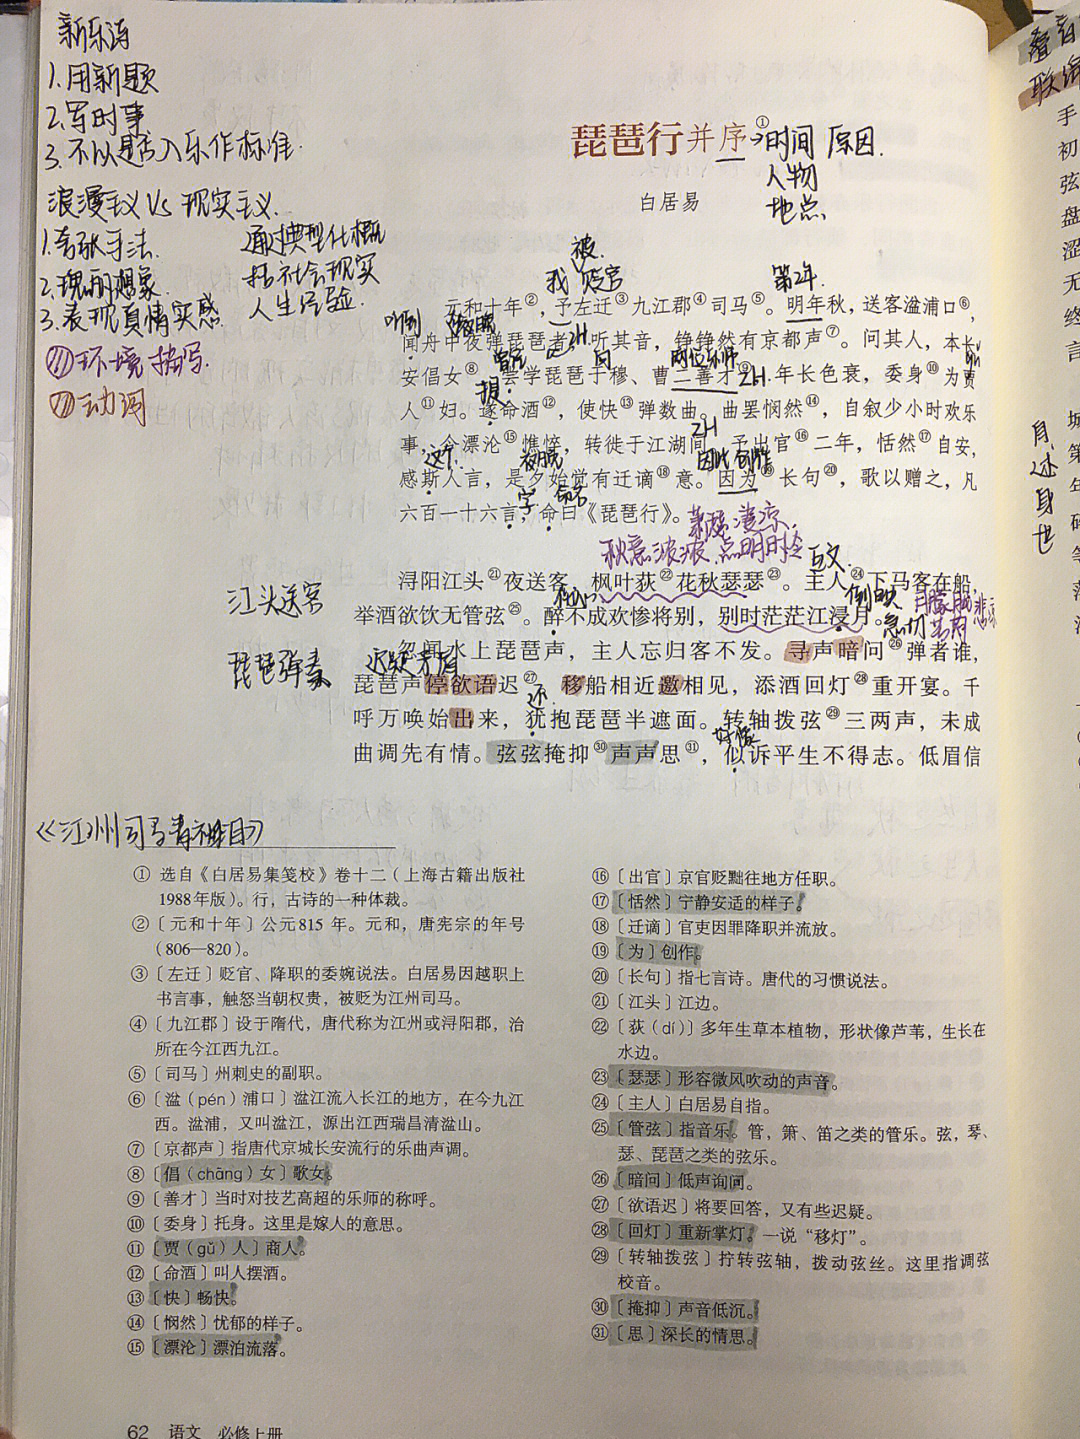 新乐诗
1.用新题
2.写时事
3.不以是否入乐作标准.
浪漫主义 Vs 现实主义.
1.夸张手法. 通过典型化概
2.瑰丽想象. 括社会现实
3.表现真情实感. 人生经验.
环境描写.
动词
琵琶行并序①
→时间 原因.
人物
地点
白居易
被.
我 贬官 第2年
元和十年②,予左迁③九江郡④司马⑤。明年秋,送客湓浦口⑥,
听到
闻舟中夜弹琵琶者,听其音,铮铮然有京都声⑦。问其人,本长
曾经 向 两位乐师
安倡女⑧,尝学琵琶于穆、曹二善才⑨。年长色衰,委身⑩为贾
人⑪妇。遂命酒⑫,使快⑬弹数曲。曲罢悯然⑭,自叙少小时欢乐
事,今漂沦⑮憔悴,转徙于江湖间。予出官⑯二年,恬然⑰自安,
这个 夜晚 因此 创作
感斯人言,是夕始觉有迁谪⑱意。因为⑲长句⑳,歌以赠之,凡
字 命名
六百一十六言,命曰《琵琶行》。
萧瑟 凄凉.
秋意浓浓 点明时怪
互文
江头送客
浔阳江头㉑夜送客,枫叶荻㉒花秋瑟瑟㉓。主人㉔下马客在船,
倒映
举酒欲饮无管弦㉕。醉不成欢惨将别,别时茫茫江浸月。
急切
忽闻水上琵琶声,主人忘归客不发。寻声暗问㉖弹者谁,
琵琶弹奏
迟疑矛盾
琵琶声停欲语迟㉗。移船相近邀相见,添酒回灯㉘重开宴。千
还
呼万唤始出来,犹抱琵琶半遮面。转轴拨弦㉙三两声,未成
好像
曲调先有情。弦弦掩抑㉚声声思㉛,似诉平生不得志。低眉信
《江州司马青衫泪》
①选自《白居易集笺校》卷十二(上海古籍出版社
1988年版)。行,古诗的一种体裁。
②〔元和十年〕公元815 年。元和,唐宪宗的年号
(806—820)。
③〔左迁〕贬官、降职的委婉说法。白居易因越职上
书言事,触怒当朝权贵,被贬为江州司马。
④〔九江郡〕设于隋代,唐代称为江州或浔阳郡,治
所在今江西九江。
⑤〔司马〕州刺史的副职。
⑥〔湓(pén)浦口〕湓江流入长江的地方,在今九江
西。湓浦,又叫湓江,源出江西瑞昌清湓山。
⑦〔京都声〕指唐代京城长安流行的乐曲声调。
⑧〔倡(chāng)女〕歌女。
⑨〔善才〕当时对技艺高超的乐师的称呼。
⑩〔委身〕托身。这里是嫁人的意思。
⑪〔贾(gǔ)人〕商人。
⑫〔命酒〕叫人摆酒。
⑬〔快〕畅快。
⑭〔悯然〕忧郁的样子。
⑮〔漂沦〕漂泊流落。
⑯〔出官〕京官贬黜往地方任职。
⑰〔恬然〕宁静安适的样子。
⑱〔迁谪〕官吏因罪降职并流放。
⑲〔为〕创作。
⑳〔长句〕指七言诗。唐代的习惯说法。
㉑〔江头〕江边。
㉒〔荻(dí)〕多年生草本植物,形状像芦苇,生长在
水边。
㉓〔瑟瑟〕形容微风吹动的声音。
㉔〔主人〕白居易自指。
㉕〔管弦〕指音乐。管,箫、笛之类的管乐。弦,琴、
瑟、琵琶之类的弦乐。
㉖〔暗问〕低声询问。
㉗〔欲语迟〕将要回答,又有些迟疑。
㉘〔回灯〕重新掌灯。一说“移灯”。
㉙〔转轴拨弦〕拧转弦轴,拨动弦丝。这里指调弦
校音。
㉚〔掩抑〕声音低沉。
㉛〔思〕深长的情思。
62 语文 必修上册
叠音
手
初
弦
盘
涩
无
终
言
自述身世
城
第
年